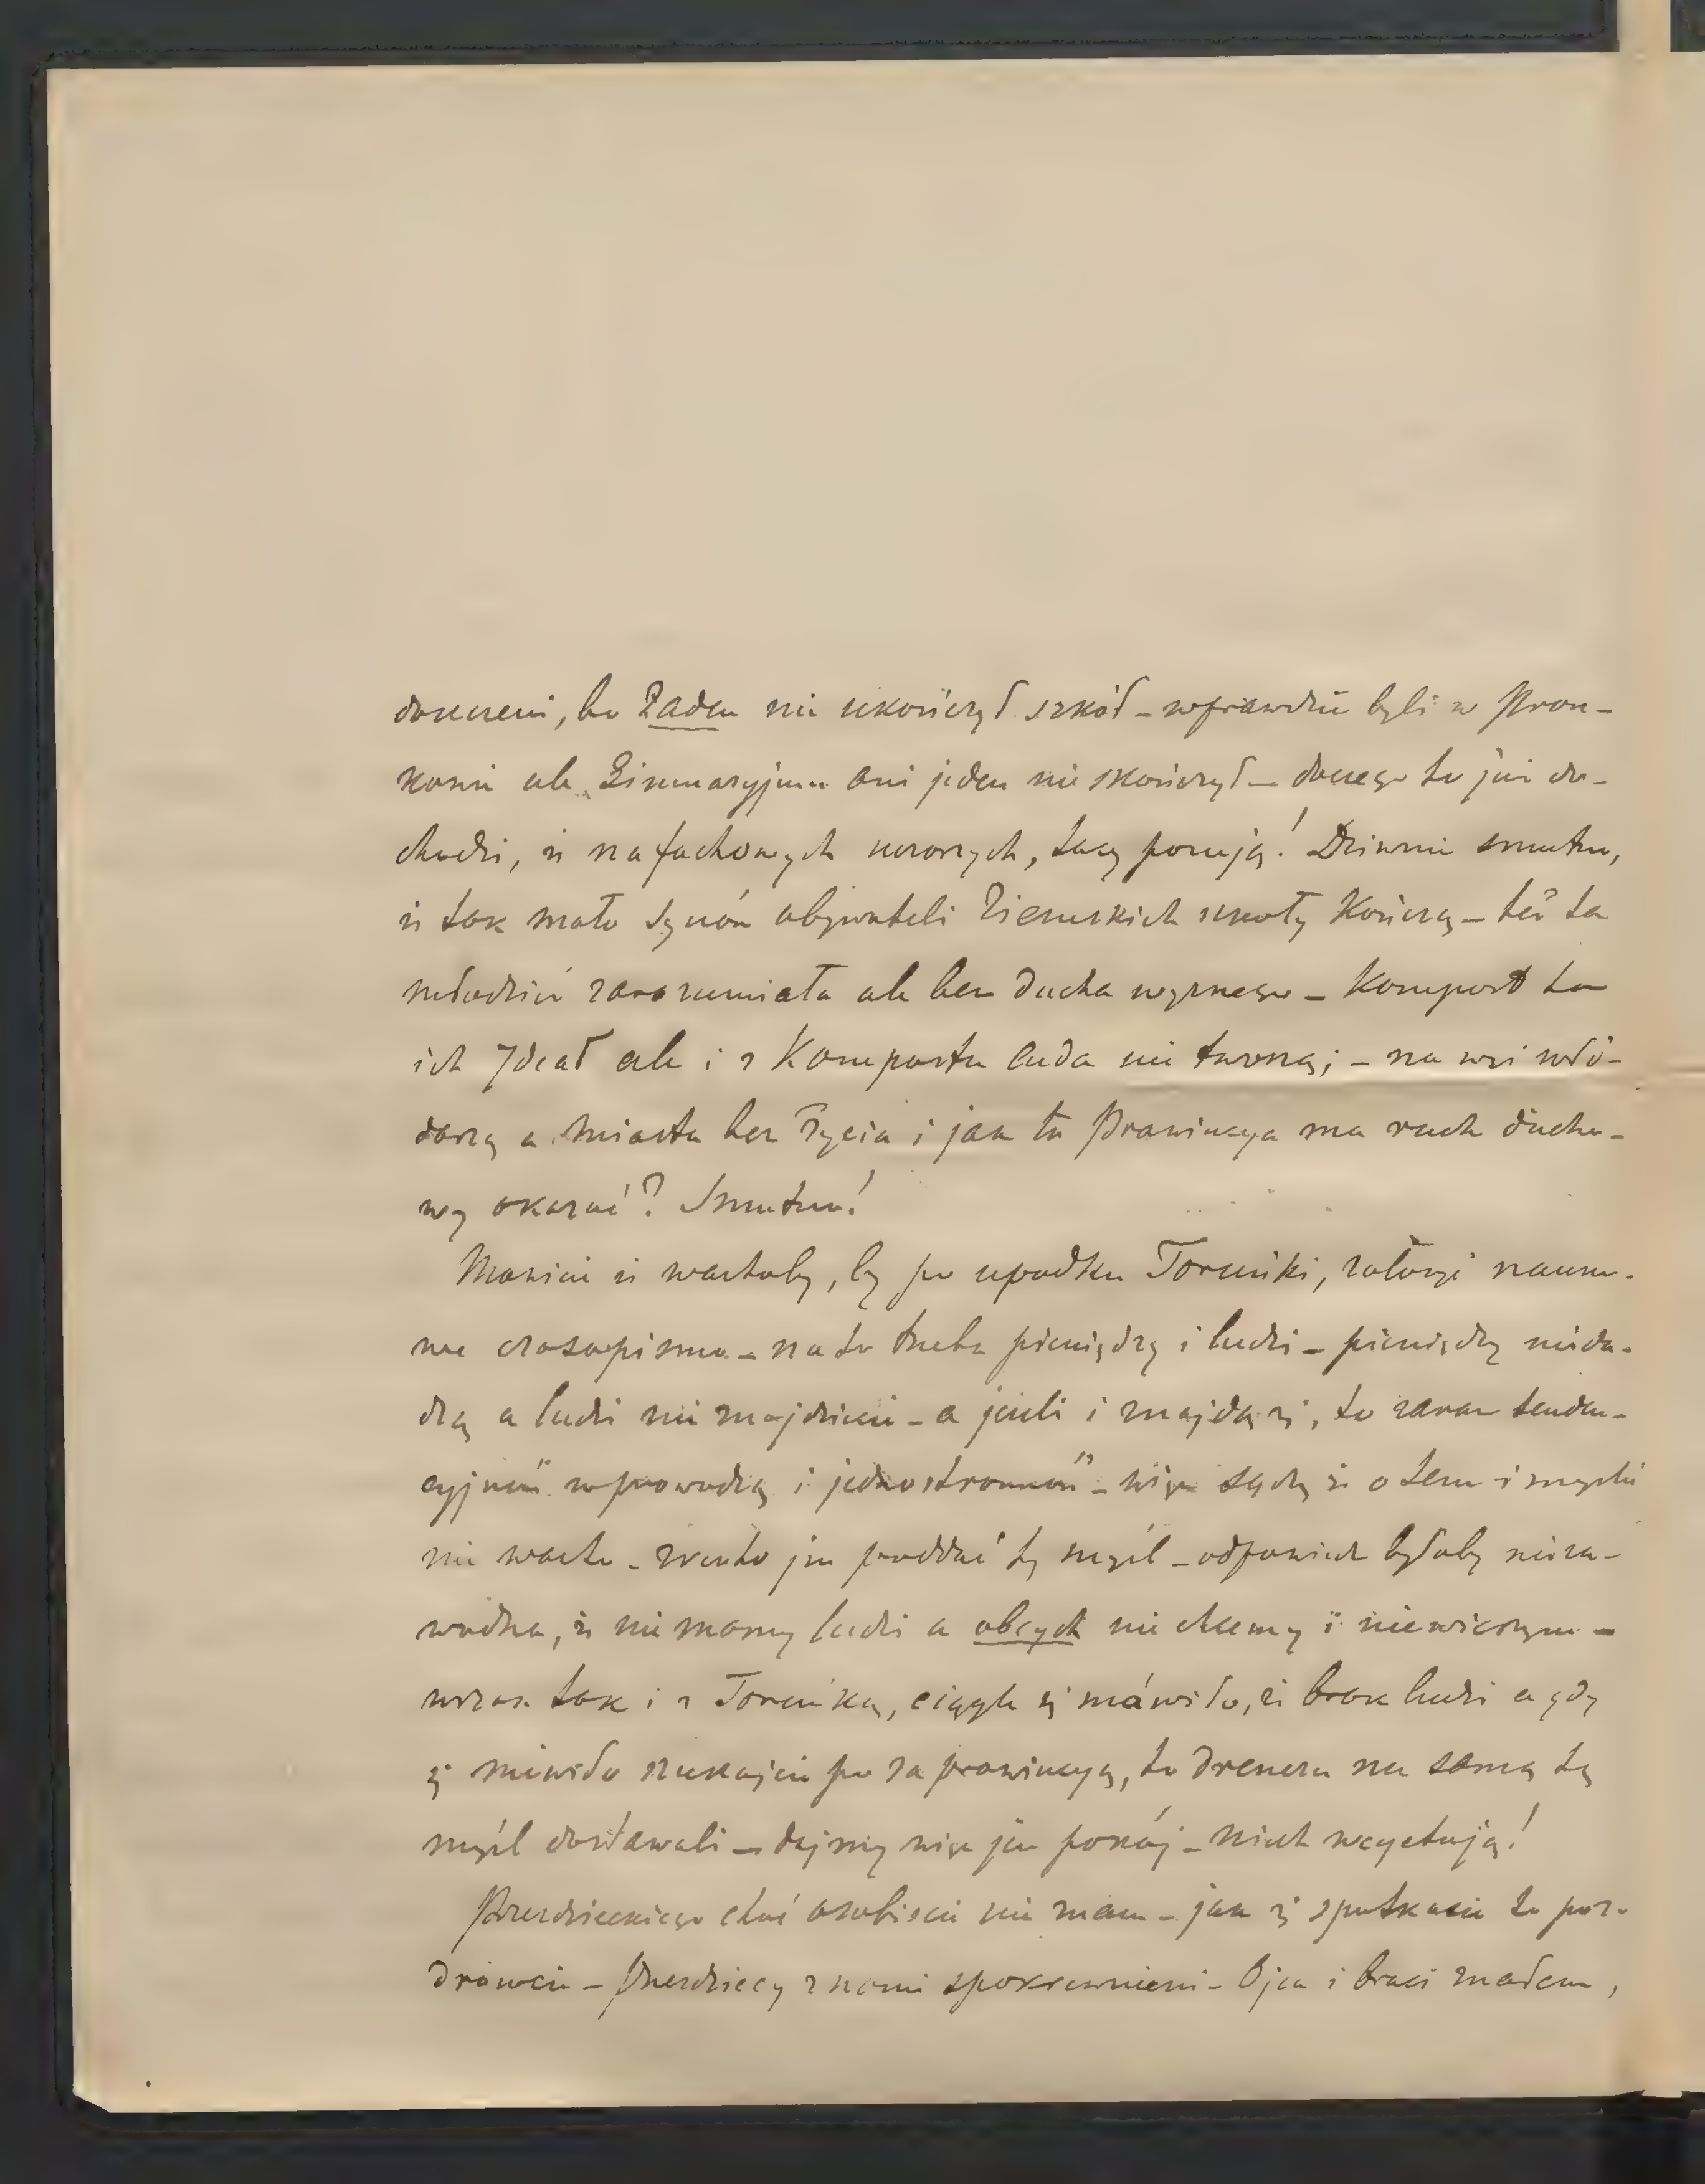 duszeni, bo żaden nie ukończył szkół – wprawdzie byli w Pron-
kami ale Gimnazyjum ani jeden nie skończył – do czego to już do-
chodzi, iż na fachowych uczonych, tacy pozują! Dziwnie smutno,
iż tak mało synów obywateli Ziemskich szkoły kończą – też ta
młodzież zarozumiała ale bez ducha wyższego – Kompost to
ich Ideał ale i z Kompostu cuda nie tworzą; – na wsi włó-
darzą a miasta bez życia i jak tu Prowincya ma ruch ducho-
wy okazać? Smutno!
Mówicie iż wartoby, by po upadku Toruńki, założyć nauko-
we czasopismo – na to trzeba pieniędzy i ludzi – pieniędzy nieda-
dzą a ludzi nie znajdziecie – a jeżeli i znajdą się, to zaraz tenden-
cyjność wprowadzą i jednostronność – więc sądzę iż o tem i myśleć
nie warto – zresztą poddać tę myśl – odpowiedź byłaby nieza-
wodna, iż nie mamy ludzi a obcych nie chcemy i niewierzym –
wszak tak i z Toruńką, ciągle się mówiło, iż brak ludzi a gdy
się mówiło szukajcie po za prowincyą, to dreszcza na samą tę
myśl dostawali – dajmy więc im pokój – niech wegetują!
Przezdzieckiego choć osobiście nie znam – jak się spotkacie to poz-
drówcie – Przezdzieccy z nami spokrewnieni – Ojca i braci znałem,